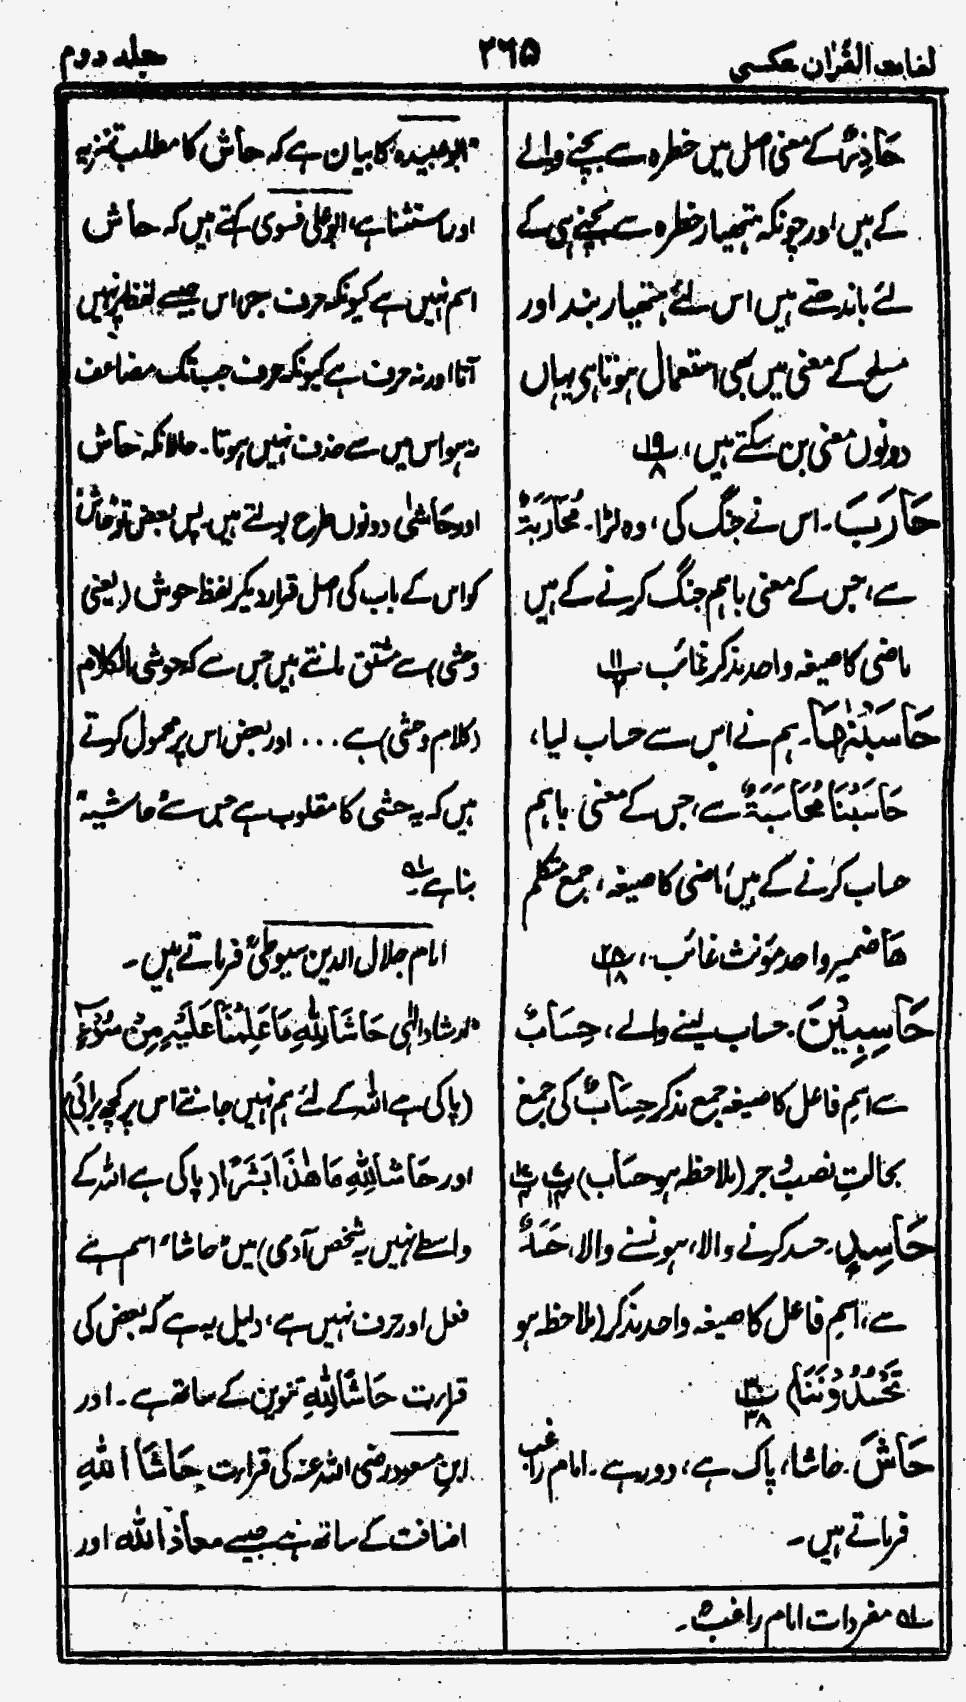 لغات القرآن عکسی
۲۶۵
جلد دوم
حَاذِرٌ کے معنی اصل میں خطرہ سے بچنے والے
کے ہیں اور چونکہ ہتھیار خطرہ سے بچنے ہی کے
لئے باندھتے ہیں اس لئے ہتھیار بند اور
مسلح کے معنی میں بھی استعمال ہوتا ہی یہاں
دونوں معنی بن سکتے ہیں، ۱۹/۸
حَارَبَ۔ اس نے جنگ کی، وہ لڑا۔ مُحَارَبَۃٌ
سے، جس کے معنی باہم جنگ کرنے کے ہیں
ماضی کا صیغہ واحد مذکر غائب ۱۱/۲
حَاسَبْنٰهَا۔ ہم نے اس سے حساب لیا،
حَاسَبْنَا مُحَاسَبَۃٌ سے، جس کے معنی باہم
حساب کرنے کے ہیں، ماضی کا صیغہ، جمع متکلم
ھَا ضمیر واحد مؤنث غائب، ۲۸/۱۸
حَاسِبِیْنَ۔ حساب لینے والے، حِسَابٌ
سے اسمِ فاعل کا صیغہ جمع مذکر حِسَابٌ کی جمع
بحالتِ نصب و جر (ملاحظہ ہو حساب)
حَاسِدٍ۔ حسد کرنے والا، ہونسنے والا، حَسَدٌ
سے، اسمِ فاعل کا صیغہ واحد مذکر (ملاحظہ ہو
تَحْسُدُوْنَنَا) ۳۰/۳۸
حَاشَ۔ حاشا، پاک ہے، دور ہے۔ امام راغب
فرماتے ہیں۔
"ابو عبیدہ کا بیان ہے کہ حاش کا مطلب تنزیہ
اور استثنا ہے، ابو علی فسوی کہتے ہیں کہ حاش
اسم نہیں ہے کیونکہ حرف جر اس جیسے لفظ پر نہیں
آتا اور نہ حرف ہے کیونکہ حرف جب تک مضاعف
نہ ہو اس میں سے حذف نہیں ہوتا۔ حالانکہ حَاش
اور حَاشٰی دونوں طرح بولتے ہیں۔ پس بعض تو حَاشَ
کو اس کے باب کی اصل قرار دیکر لفظ حوش (یعنی
وحشی) سے مشتق مانتے ہیں جس سے کہ حوشی الکلام
(کلام وحشی) ہے ... اور بعض اس پر محمول کرتے
ہیں کہ یہ حشی کا مقلوب ہے جس سے حاشیہ"
بنا ہے
امام جلال الدین سیوطیؒ فرماتے ہیں۔
"ارشاد الٰہی حَاشَ لِلّٰهِ مَا عَلِمْنَا عَلَیْهِ مِنْ سُوْٓءٍ
(پاکی ہے اللہ کے لئے ہم نہیں جانتے اس پر کچھ برائی)
اور حَاشَ لِلّٰهِ مَا هٰذَا بَشَرًا (پاکی ہے اللہ کے
واسطے نہیں یہ شخص آدمی) میں "حاشا" اسم ہے
فعل اور حرف نہیں ہے، دلیل یہ ہے کہ بعض کی
قرارت حَاشًا لِلّٰهِ تنوین کے ساتھ ہے۔ اور
ابن مسعود رضی اللہ عنہ کی قرارت حَاشَا اللهِ
اضافت کے ساتھ ہے جیسے معاذ اللہ اور
مفردات امام راغبؒ۔